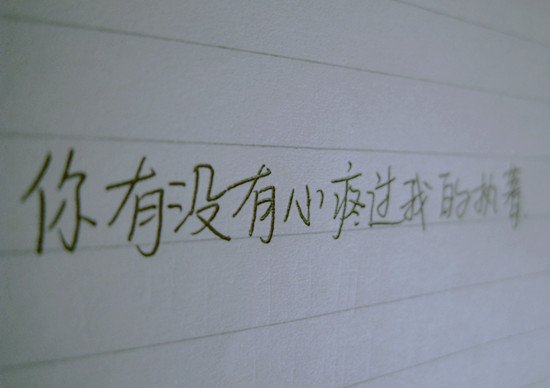 你有没有小疼过我的执著